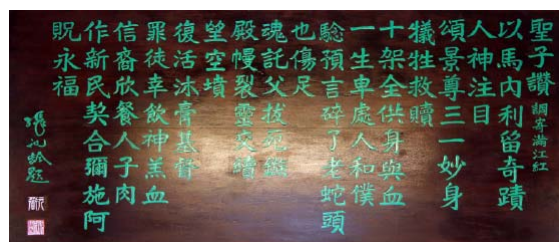 聖子讚 調寄滿江紅
以馬內利留奇蹟
人神注目
頌景尊三一妙身
犧牲救贖
十架全供身與血
一生卑處人和僕
驗預言碎了老蛇頭
也傷足
魂託父拔死鋦
殿幔裂靈交續
望空墳
復活沐膏基督
罪徒幸飲神羔血
信裔欣餐人子肉
作新民契合彌施阿
貺永福